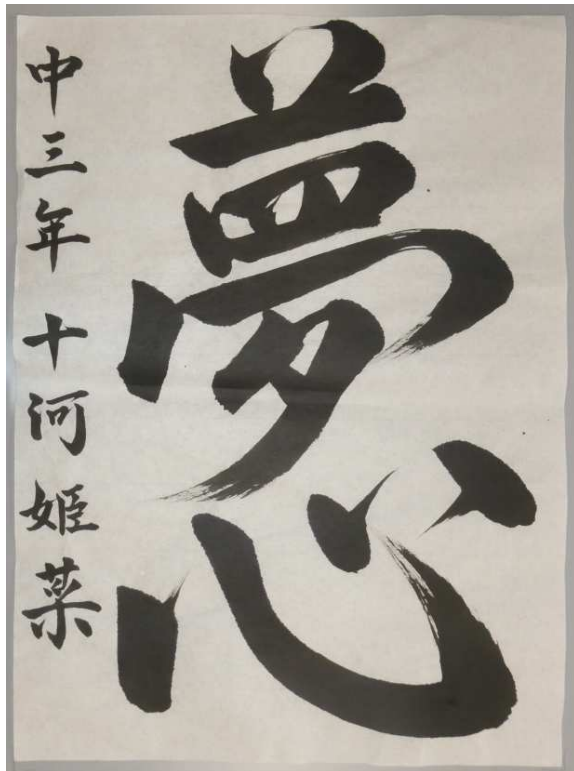 夢心
中三年 十河姫菜